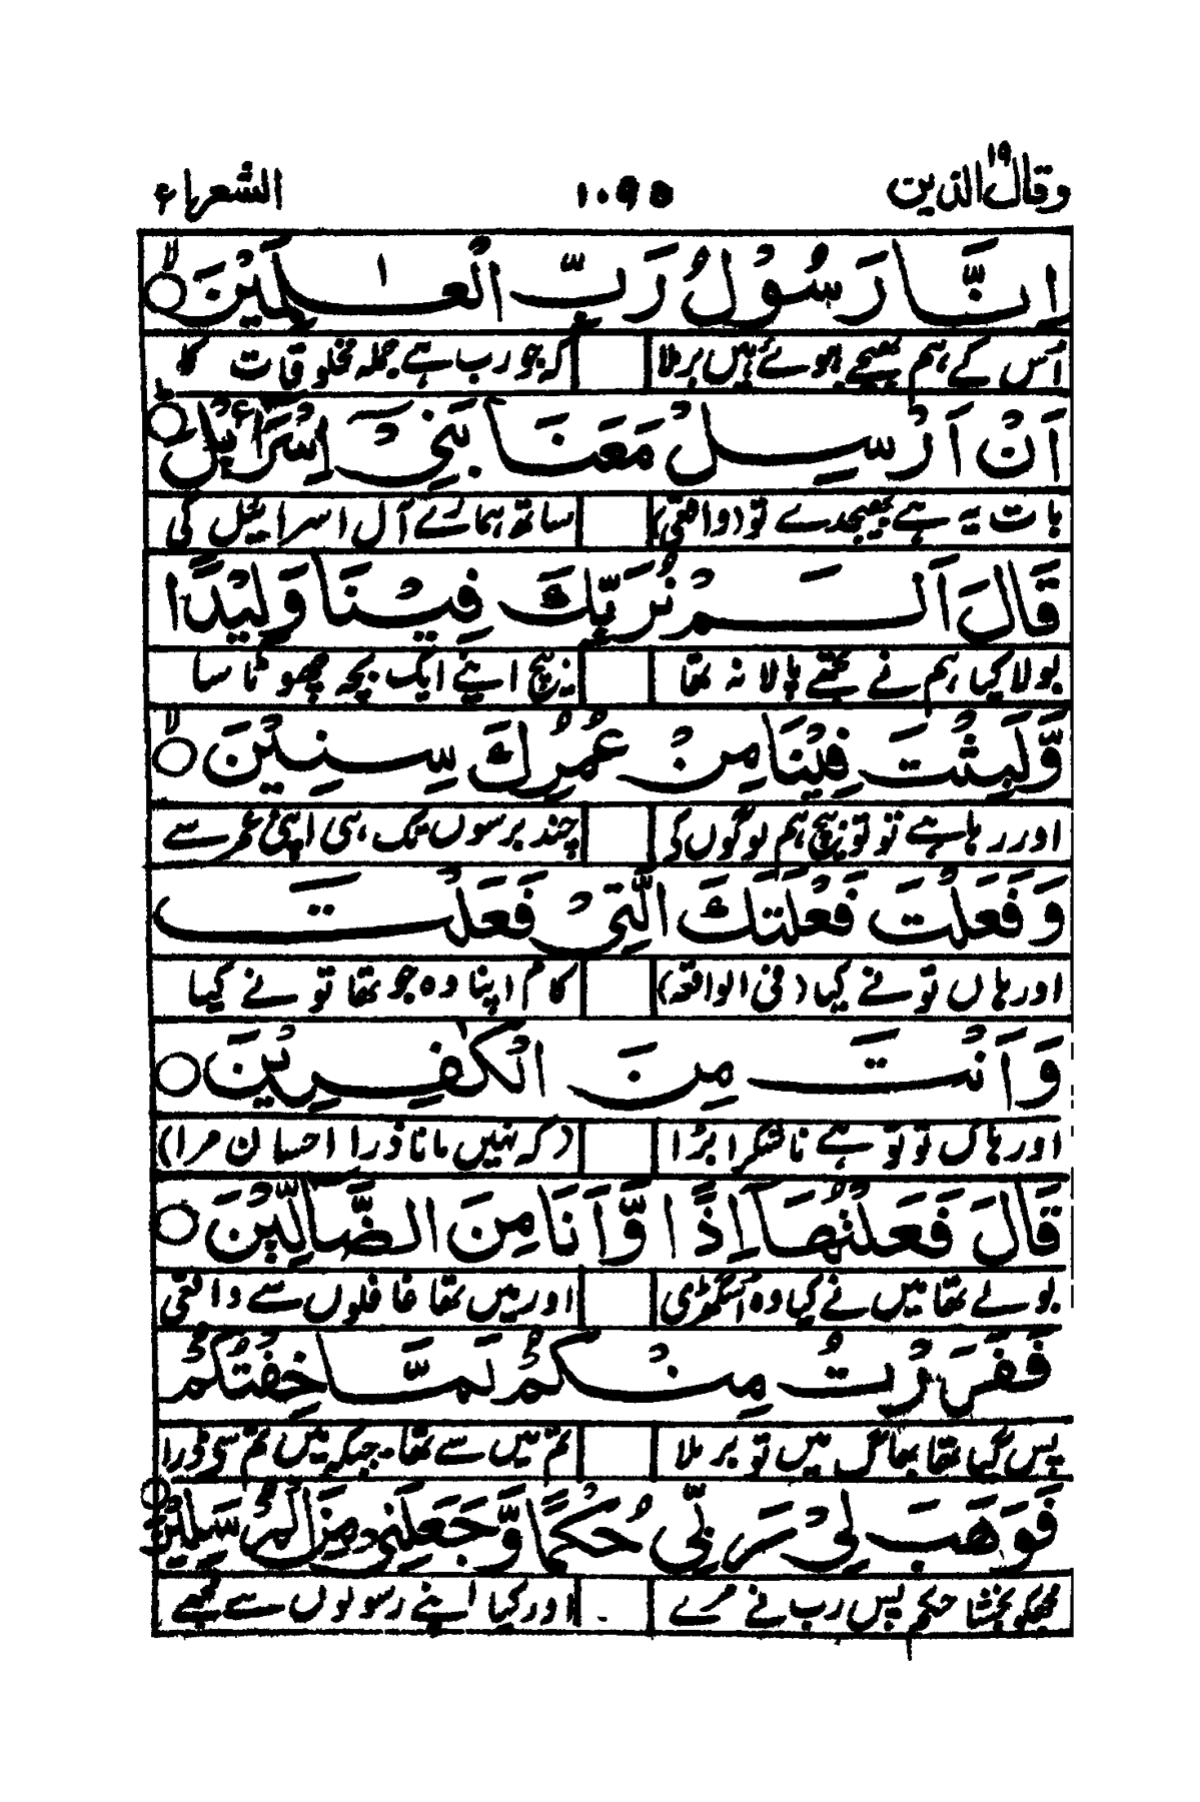 وقال الذین ۱۹ ۱۰۹۵ الشعراء
اِنَّا رَسُوْلُ رَبِّ الْعٰلَمِيْنَ ۙ
اُس کے ہم بھیجے ہوئے ہیں برملا کہ جو رب ہے جملہ مخلوقات کا
اَنْ اَرْسِلْ مَعَنَا بَنِيْٓ اِسْرَآءِيْلَ ؕ
بات یہ ہے بھیجدے تو (واقعی) ساتھ ہمارے آل اسرائیل کی
قَالَ اَلَمْ نُرَبِّكَ فِيْنَا وَلِيْدًا
بولا کیا ہم نے تجھے پالا نہ تھا بیچ اپنے ایک بچہ چھوٹا سا
وَّلَبِثْتَ فِيْنَا مِنْ عُمُرِكَ سِنِيْنَ ۙ
اور رہا ہے تو تو بیچ ہم لوگوں کے چند برسوں تک ہی اپنی عمر سے
وَفَعَلْتَ فَعْلَتَكَ الَّتِيْ فَعَلْتَ
اور ہاں تو نے کیا (فی الواقعہ) کام اپنا وہ جو تھا تو نے کیا
وَاَنْتَ مِنَ الْكٰفِرِيْنَ
اور ہاں تو تو ہے ناشکرا بڑا (کہ نہیں مانا ذرا احسان مرا)
قَالَ فَعَلْتُهَآ اِذًا وَّاَنَا مِنَ الضَّآلِّيْنَ
بولے تھا میں نے کیا وہ اُس گھڑی اور میں تھا غافلوں سے واقعی
فَفَرَرْتُ مِنْكُمْ لَمَّا خِفْتُكُمْ
پس گیا تھا بھاگ میں تو برملا تم میں سے تھا۔ جبکہ میں تم سے ڈرا
فَوَهَبَ لِيْ رَبِّيْ حُكْمًا وَّجَعَلَنِيْ مِنَ الْمُرْسَلِيْنَ
مجھکو بخشا حکم پس رب نے مرے اور کیا اپنے رسولوں سے مجھے